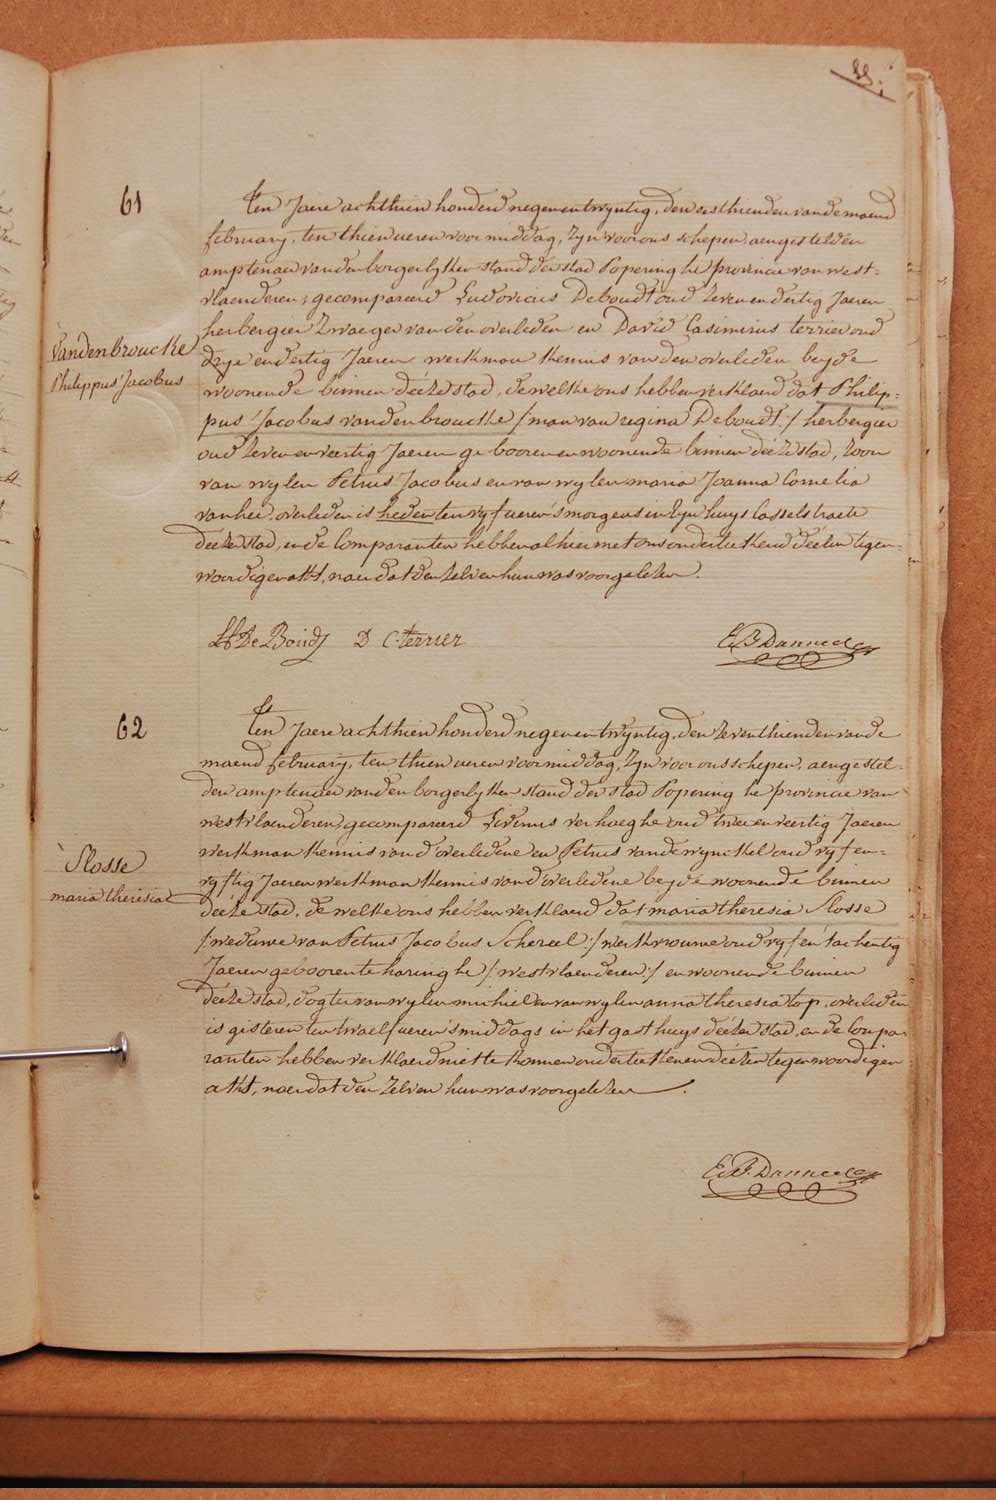 61
Ten Jaere achthien honderd negenentwyntig, den sesthienden van de maend
february, ten thien ueren voormiddag, zyn voor ons schepen aengestelden
amptenaer van den borgerlyken stand der stad Poperinghe provincie van west=
vlaenderen, gecompareerd Ludovicus Deboudt oud zeven endertig Jaeren
herbergier zwaeger van den overleden en David Casimirus terrier oud
drye endertig Jaeren werkman kennis van den overleden beyde
woonende binnen deéze stad, de welke ons hebben verklaerd dat Philip=
pus Jacobus vandenbroucke /: man van regina Deboudt :/ herbergier
oud zeven en veertig Jaeren gebooren en woonende binnen deéze stad, zoon
van wylen Petrus Jacobus en van wylen maria Joanna Cornelia
vanhee, overleden is heden ten vyf ueren 's morgens in zyn huys Casselstraete
deéze stad, en de Comparanten hebben alhier met ons onderteekend deézen tegen=
woordigen akt, naer dat den zelven hun was voorgelezen.
Vandenbroucke
Philippus Jacobus
D C. terrier
62
Ten Jaere achthien honderd negenentwyntig, den zeventhienden van de
maend february, ten thien ueren voormiddag, zyn voor ons schepen, aengestel=
den amptenaer van den borgerlyken stand der stad Poperinghe provincie van
westvlaenderen, gecompareerd Livinus verhaeghe oud twee en veertig Jaeren
werkman kennis van d'overledene en Petrus vandewynckel oud vyf en=
vyftig Jaeren werkman kennis van d'overledene beyde woonende binnen
deéze stad, de welke ons hebben verklaerd dat maria theresia Slosse
/: weduwe van Petrus Jacobus Schereel :/ werkvrouwe oud vyf en tachentig
Jaeren gebooren te haringhe /: westvlaenderen :/ en woonende binnen
deéze stad, dogter van wylen michiel en van wylen anna theresia top, overleden
is gisteren ten twaelf ueren 's middags in het gasthuys deézer stad, en de Compa=
ranten hebben verklaerd niet te konnen onderteekenen deézen tegenwoordigen
akt, naer dat den zelven hun was voorgelezen.
Slosse
maria theresia